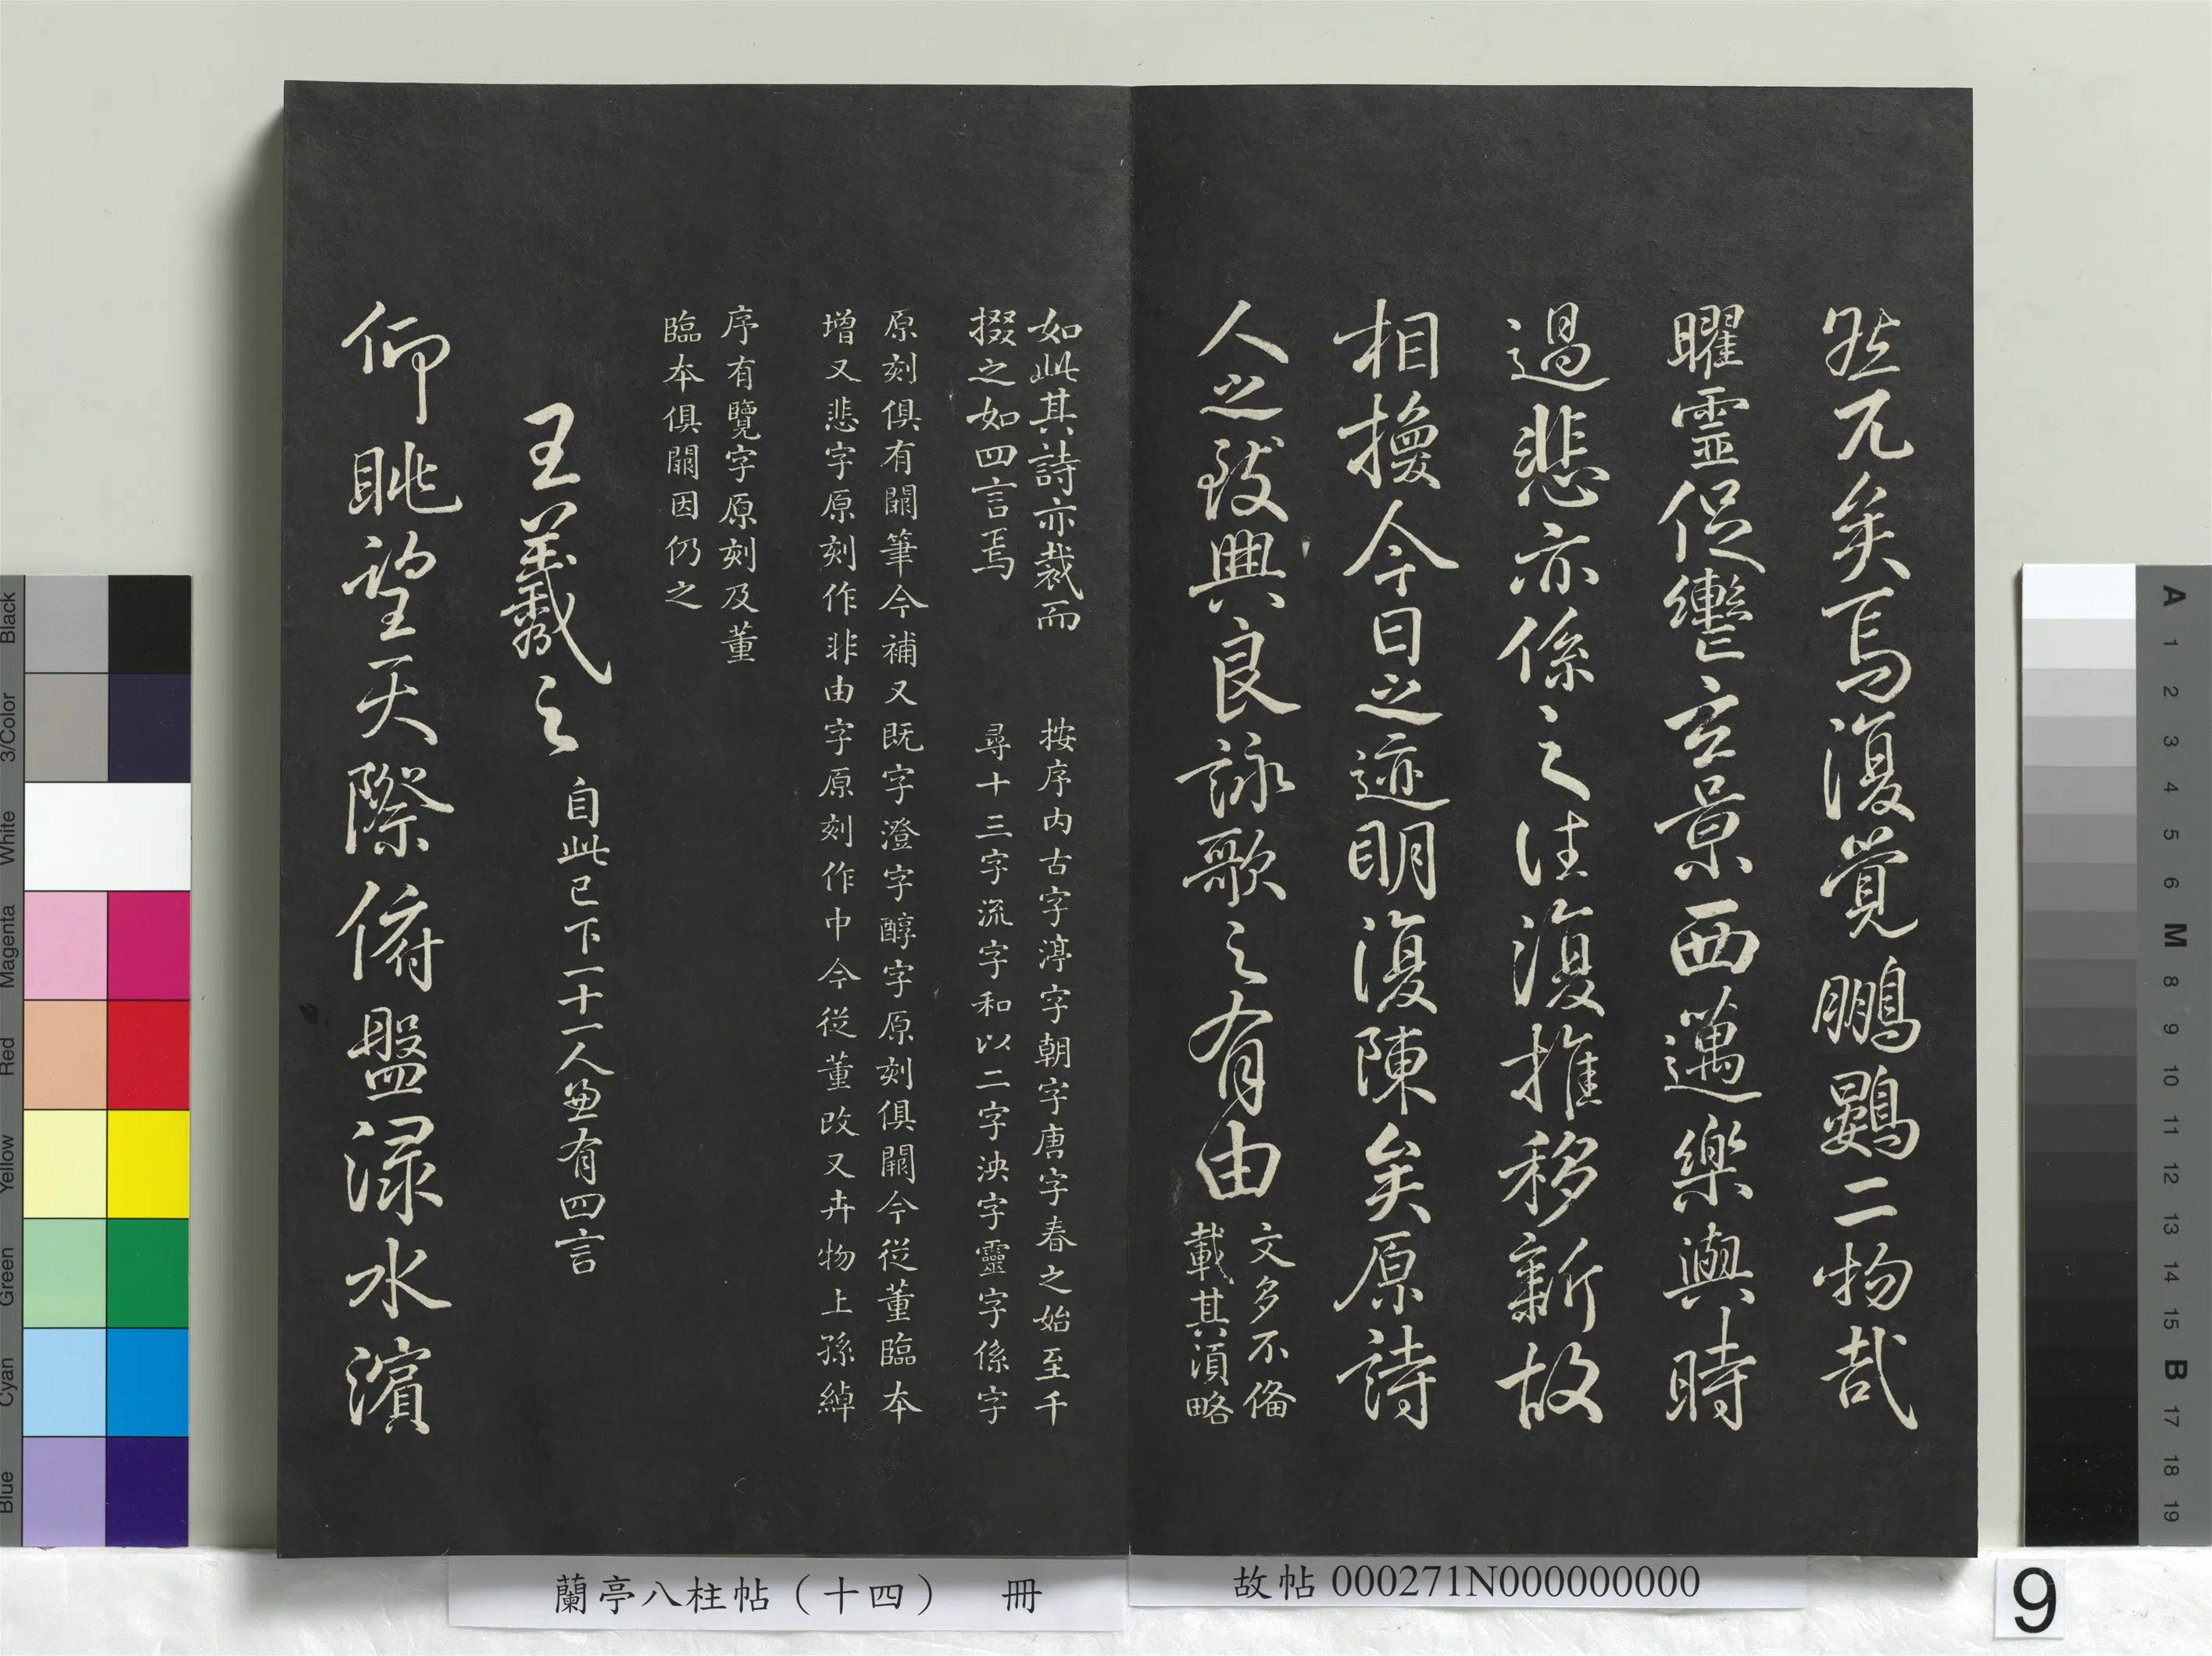 然兀矣焉復覺鵬鷃二物哉
曜靈促轡玄景西邁樂與時
過悲亦係之往復推移新故
相換今日之迹明復陳矣原詩
人之致興良詠歌之有由
文多不備
載其湏略
如此其詩亦裁而
掇之如四言焉
按序内古字渟字朝字唐字春之始至千
尋十三字流字和以二字泱字靈字係字
原刻俱有闕筆今補又既字澄字醇字原刻俱闕今從董臨本
增又悲字原刻作非由字原刻作中今從董改又卉物上孫綽
序有覽字原刻及董
臨本俱闕因仍之
王羲之
自此已下一十一人兼有四言
仰眺望天際俯盤淥水濱
蘭亭八柱帖（十四） 冊
故帖 000271N000000000
9
Black
3/Color
White
Magenta
Red
Yellow
Green
Cyan
Blue
A
1
2
3
4
5
6
M
8
9
10
11
12
13
14
15
B
17
18
19